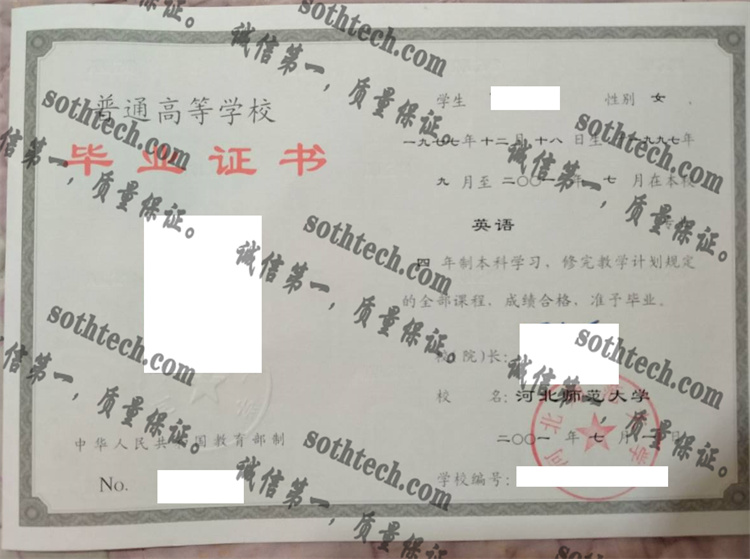 普通高等学校
毕业证书
中华人民共和国教育部制
No.
学生 性别 女 ,
一九七七年十二月十八日生 一九九七年
九 月至 二〇〇一 年 七 月在本校
英语
四 年制本科学习、修完教学计划规定
的全部课程, 成绩合格, 准予毕业。
校(院)长:
校 名: 河北师范大学
二〇〇一 年 七 月 日
学校编号:
sothtech.com
诚信第一,质量保证。
sothtech.com
诚信第一,质量保证。
sothtech.com
诚信第一,质量保证。
sothtech.com
诚信第一,质量保证。
sothtech.com
诚信第一,质量保证。
sothtech.com
诚信第一,质量保证。
sothtech.com
诚信第一,质量保证。
sothtech.com
诚信第一,质量保证。